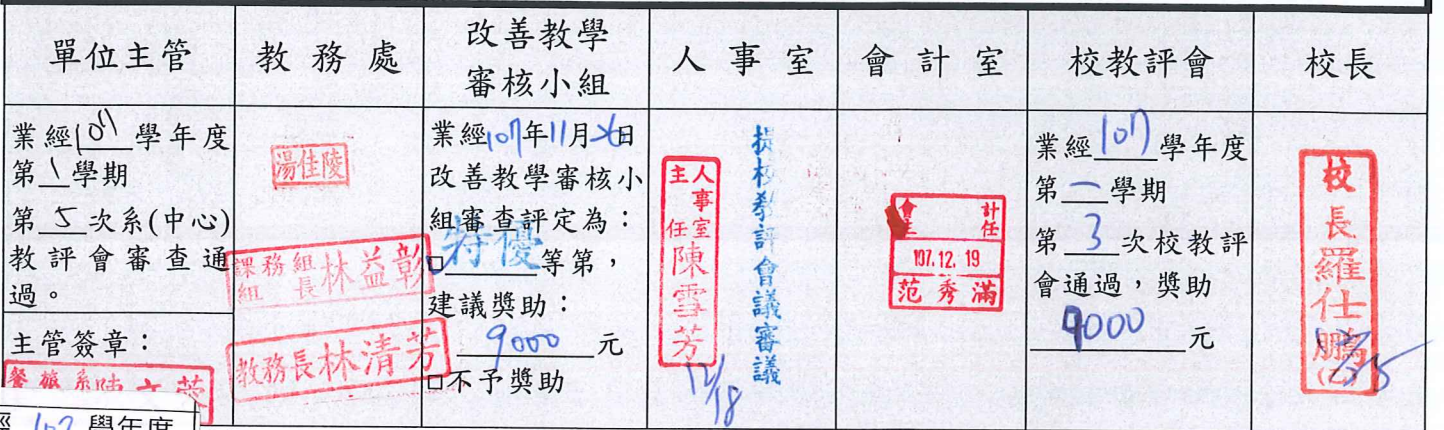 單位主管
教務處
改善教學
審核小組
人事室
會計室
校教評會
校長
業經107學年度
第1學期
第5次系(中心)
教評會審查通
過。
主管簽章：
湯佳陵
課務組
組長林益彰
教務長林清芳
業經107年11月26日
改善教學審核小
組審查評定為：
□特優等第，
建議獎助：
9000元
□不予獎助
人事室
主任陳雪芳
12/18
提校教評會議審議
會計
主任
107.12.19
范秀滿
業經107學年度
第一學期
第3次校教評
會通過，獎助
9000元
校長羅仕鵬
107學年度